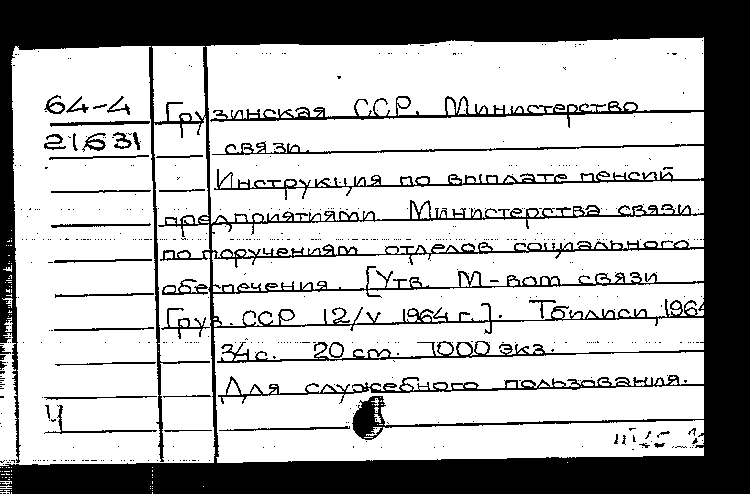 64-4
21631
Грузинская ССР. Министерство
связи.
Инструкция по выплате пенсий
предприятиями Министерства связи
по поручениям отделов социального
обеспечения. [Утв. М-вом связи
Груз. ССР 12/V 1964 г.]. Тбилиси, 1964
34 с. 20 см. 1000 экз.
Для служебного пользования.
Ч